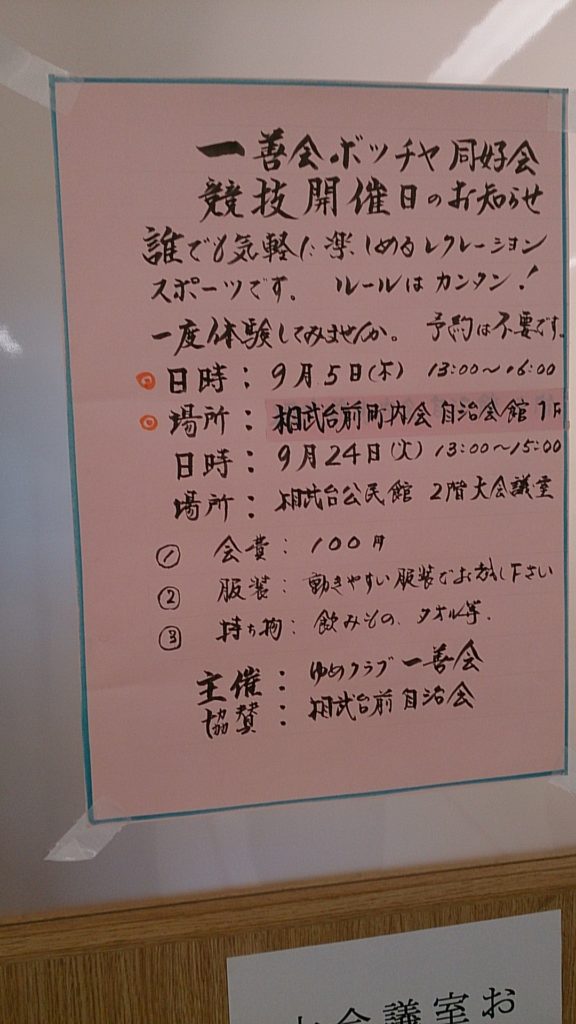 一善会ボッチャ同好会
競技開催日のお知らせ
誰でも気軽に楽しめるレクレーション
スポーツです。 ルールはカンタン!
一度体験してみませんか。 予約は不要です。
日時: 9月5日(木) 13:00~16:00
場所: 相武台前町内会 自治会館 1F
日時: 9月24日(火) 13:00~15:00
場所: 相武台公民館 2階大会議室
① 会費: 100円
② 服装: 動きやすい服装でお越し下さい
③ 持ち物: 飲みもの、タオル等.
主催: ゆめクラブ 一善会
協賛: 相武台前自治会
会議室お